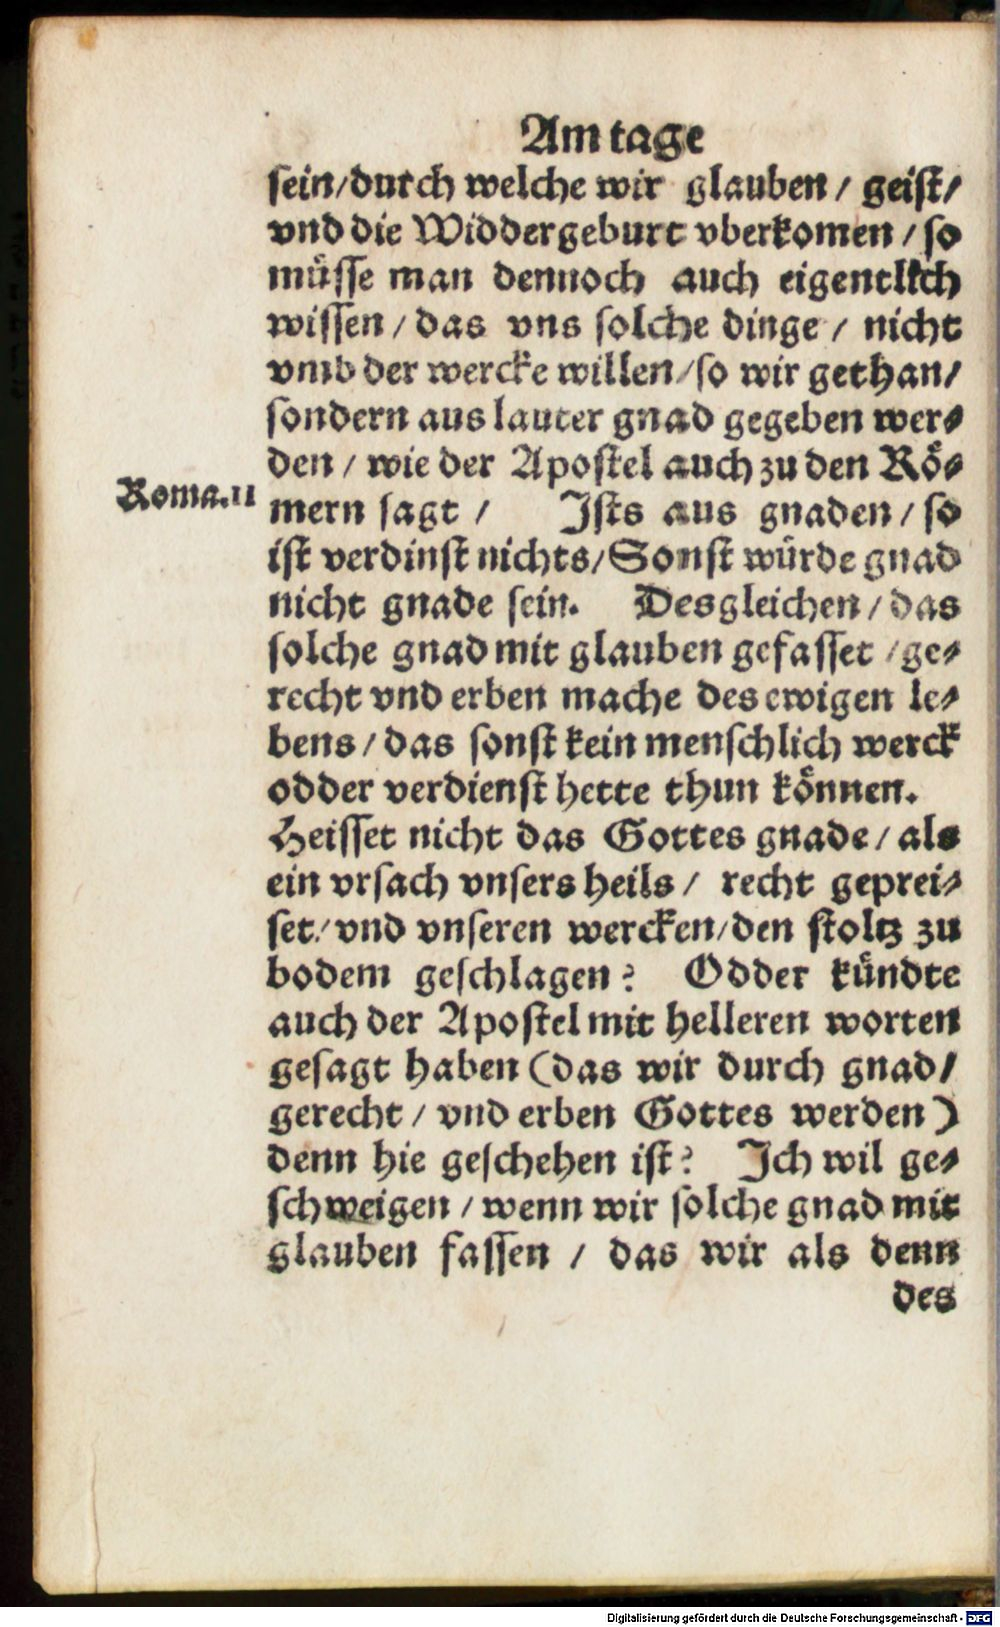 Am tage
sein/durch welche wir glauben / geist/
vnd die Widdergeburt vberkomen / so
müsse man dennoch auch eigentlich
wissen / das vns solche dinge / nicht
vmb der wercke willen/so wir gethan/
sondern aus lauter gnad gegeben wer⸗
den / wie der Apostel auch zu den Rö⸗
Roma.11
mern sagt / Ists aus gnaden / so
ist verdinst nichts/Sonst würde gnad
nicht gnade sein. Desgleichen / das
solche gnad mit glauben gefasset /ge⸗
recht vnd erben mache des ewigen le⸗
bens / das sonst kein menschlich werck
odder verdienst hette thun können.
Heisset nicht das Gottes gnade / als
ein vrsach vnsers heils / recht geprei⸗
set/ vnd vnseren wercken/den stoltz zu
bodem geschlagen? Odder kündte
auch der Apostel mit helleren worten
gesagt haben (das wir durch gnad/
gerecht / vnd erben Gottes werden)
denn hie geschehen ist? Ich wil ge⸗
schweigen / wenn wir solche gnad mit
glauben fassen / das wir als denn
des
Digitalisierung gefördert durch die Deutsche Forschungsgemeinschaft - DFG